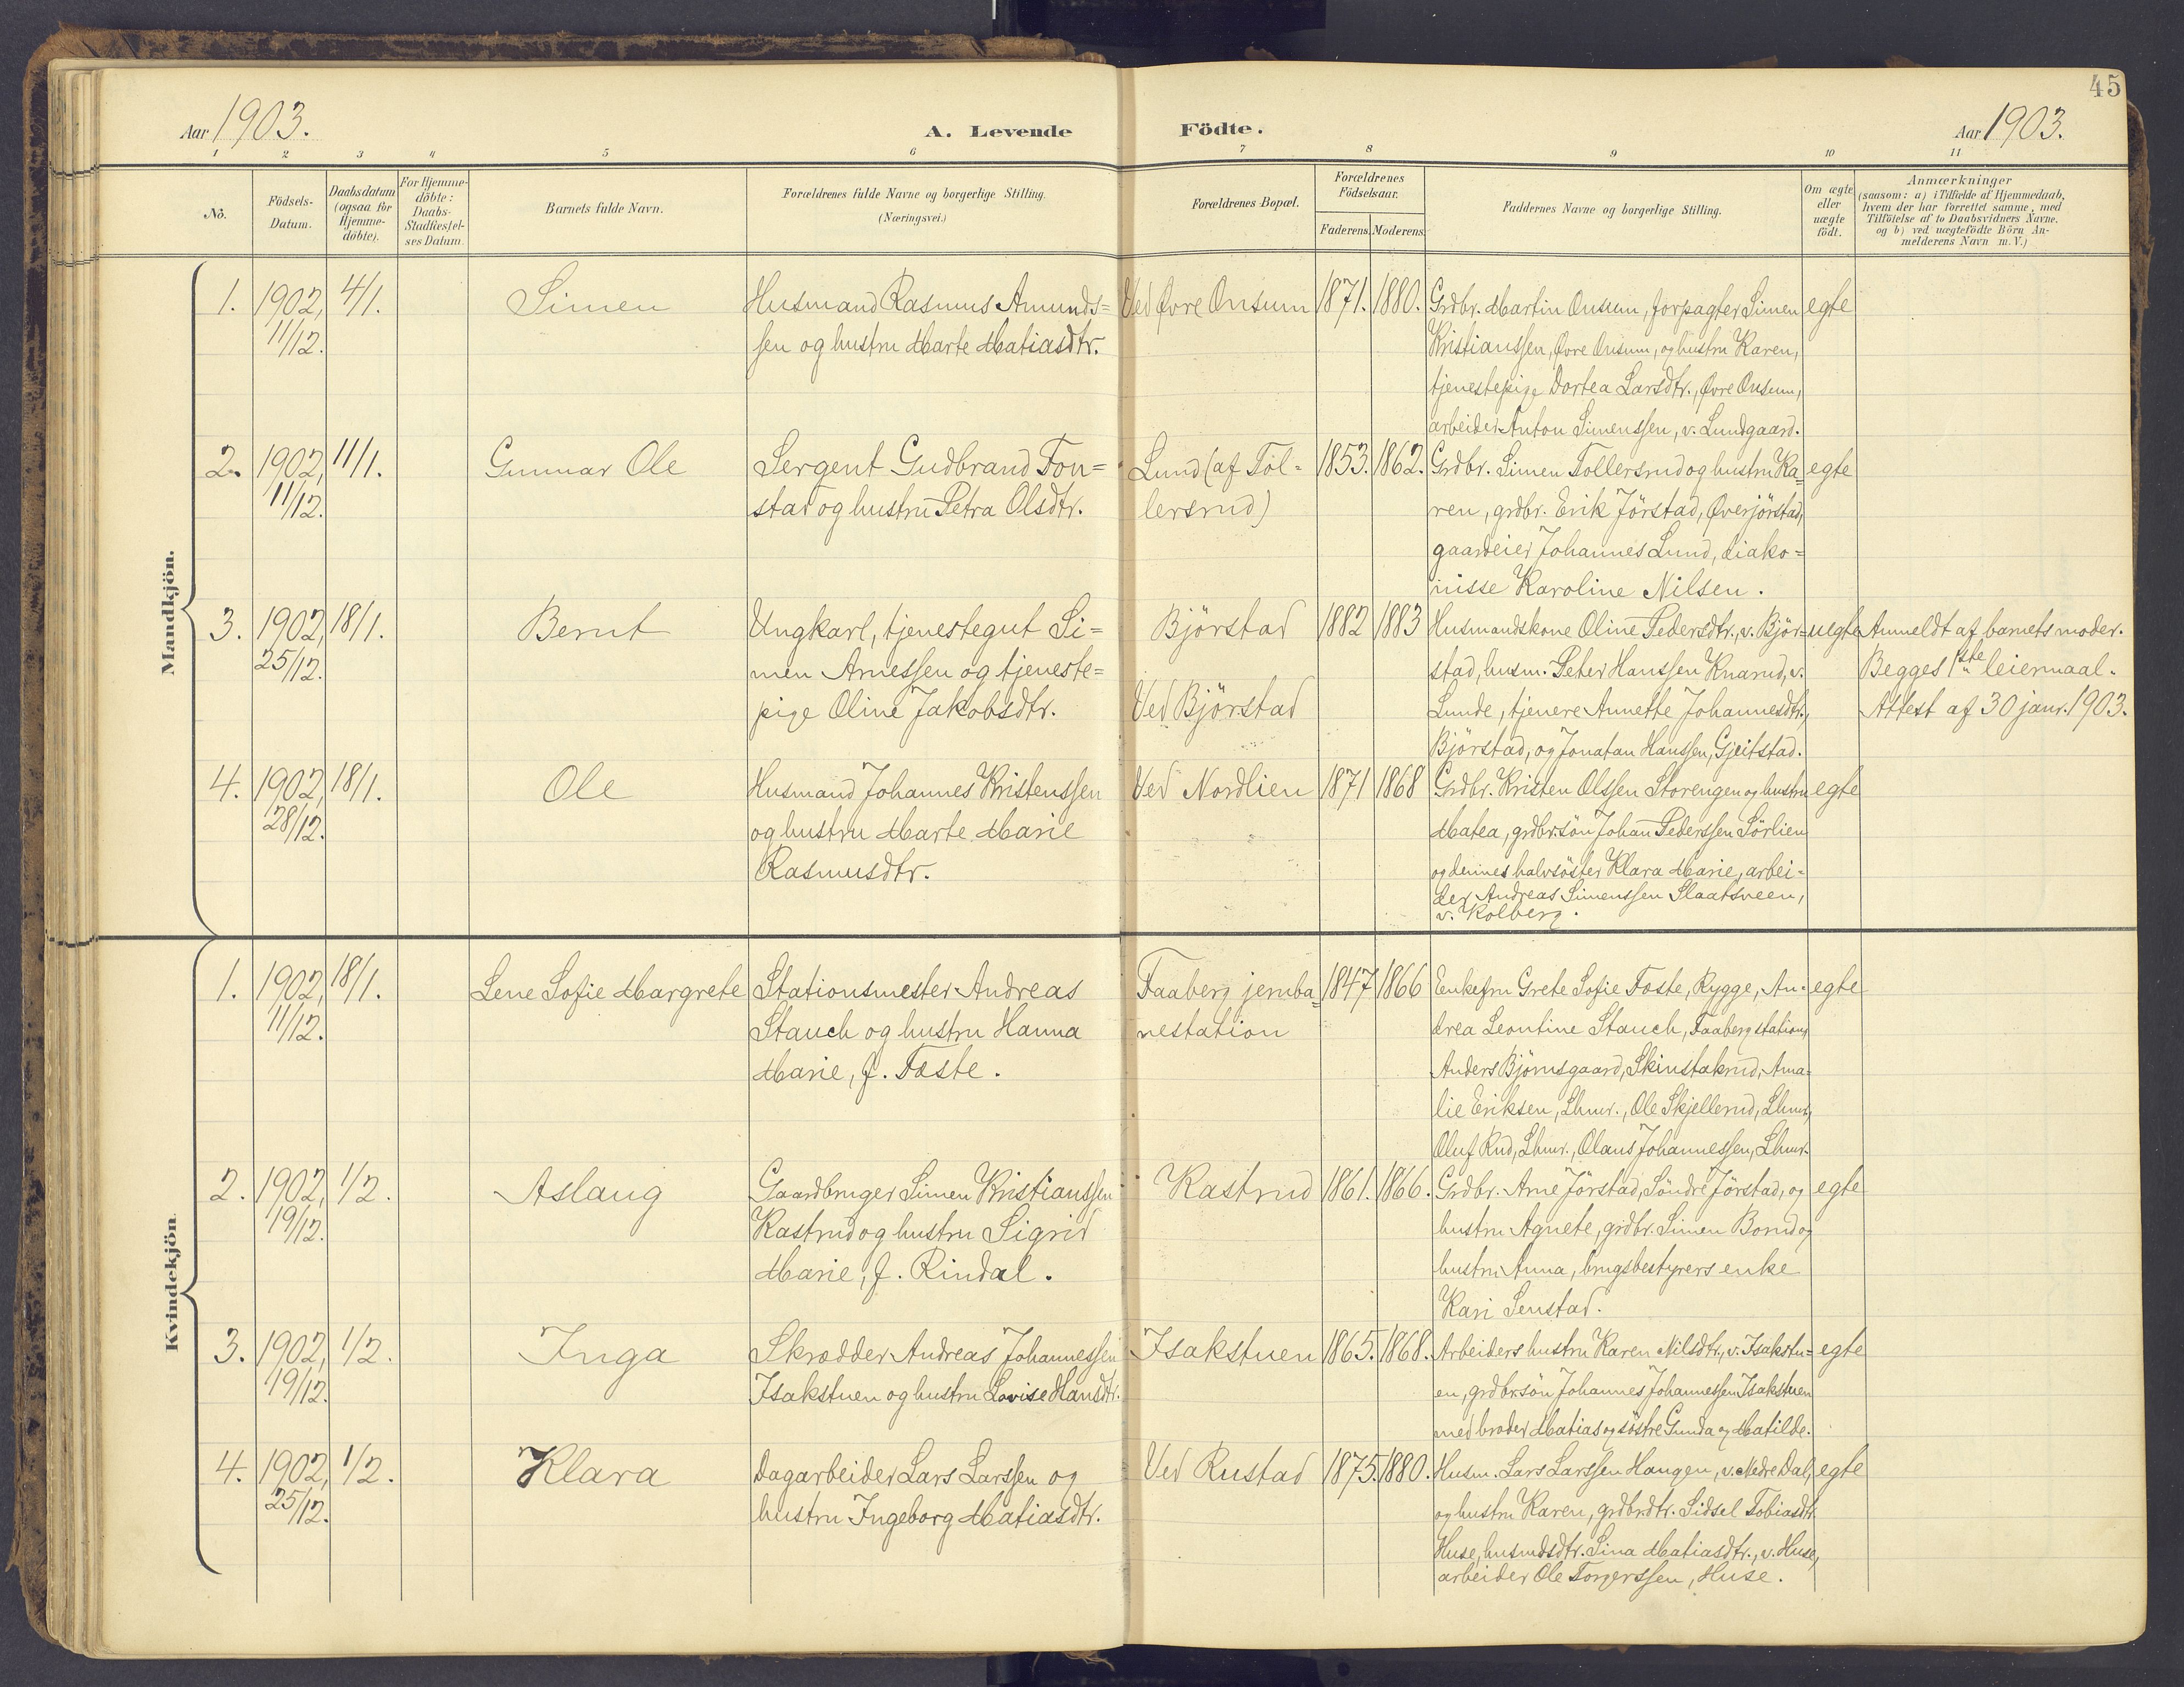 45
Aar 1903.
A. Levende Födte.
Aar 1903.
1 2 3 4 5 6 7 8 9 10 11
No.
Födsels-Datum.
Daabsdatum (ogsaa for Hjemme-döbte).
For Hjemme-döbte: Daabs-Stadfæstel-ses Datum.
Barnets fulde Navn.
Forældrenes fulde Navne og borgerlige Stilling.
(Næringsvei.)
Forældrenes Bopæl.
Forældrenes Födselsaar.
Faderens. Moderens.
Faddernes Navne og borgerlige Stilling.
Om ægte eller uægte födt.
Anmærkninger
(saasom: a) i Tilfælde af Hjemmedaab,
hvem der har forrettet samme, med
Tilföielse af to Daabsvidners Navne.
og b) ved uægtefödte Börn An-
melderens Navn m. V.)
Mandkjön.
1. 1902, 4/1. Simen Husmand Rasmus Amunds= Ved Øvre Onsum 1871. 1880. Grdbr. Martin Onsum, forpagter Simen egte
11/12. sen og hustru Marte Matiasdtr. Kristianssen, Øvre Onsum, og hustru Karen,
tjenestepige Dortea Larsdtr., Øvre Onsum,
arbeider Anton Simenssen, v. Lundgaard.
2. 1902, 11/1. Gunnar Ole Sergent Gudbrand Fon= Lund (af Tol= 1853. 1862. Grdbr. Simen Tollersrud og hustru Ka= egte
11/12. stad og hustru Petra Olsdtr. lersrud) ren, grdbr. Erik Jörstad, Øverjörstad,
gaardeier Johannes Lund, diako=
nisse Karoline Nilsen.
3. 1902, 18/1. Bernt Ungkarl, tjenestegut Si= Björstad 1882 1883 Husmandskone Oline Pedersdtr., v. Björ= uegte Anmeldt af barnets moder.
25/12. men Arnessen og tjeneste= stad, husm. Peter Hanssen Knarud, v. Begges 1ste leiermaal.
pige Oline Jakobsdtr. Ved Björstad Lunde, tjenere Annette Johannesdtr., Attest af 30 janr. 1903.
Björstad, og Jonatan Hanssen, Gjeitstad.
4. 1902, 18/1. Ole Husmand Johannes Kristenssen Ved Nordlien 1871 1868 Grdbr. Kristen Olssen Storengen og hustru egte
28/12. og hustru Marte Marie Matea, grdbr.sön Johan Pederssen Sörlien
Rasmusdtr. og dennes halvsöster Klara Marie, arbei=
der Andreas Simenssen Slaatsveen,
v. Kolberg.
Kvindekjön.
1. 1902, 18/1. Lene Sofie Margrete Stationsmester Andreas Faaberg jernba= 1847 1866 Enkefru Grete Sofie Foste, Rygge, An= egte
11/12. Stauch og hustru Hanna nestation drea Leontine Stauch, Faaberg station,
Marie, f. Foste. Anders Björnsgaard, Skinstakrud, Ama=
lie Eriksen, Lhmr., Ole Skjellerud, Lhmr.,
Oluf Rud, Lhmr., Olaus Johannessen, Lhmr.
2. 1902, 1/2. Aslaug Gaardbruger Simen Kristianssen Rastrud 1861. 1866. Grdbr. Arne Jörstad, Söndre Jörstad, og egte
19/12. Rastrud og hustru Sigrid hustru Agnete, grdbr. Simen Borud og
Marie, f. Rindal. hustru Anna, brugsbestyrers enke
Kari Senstad.
3. 1902, 1/2. Inga Skrædder Andreas Johannessen Isakstuen 1865. 1868. Arbeiders hustru Karen Nilsdtr., v. Isakstu= egte
19/12. Isakstuen og hustru Lovise Hansdtr. en, grdbr.sön Johannes Johannessen Isakstuen
med broder Matias og söstre Gunda og Matilde.
4. 1902, 1/2. Klara Dagarbeider Lars Larssen og Ved Rustad 1875. 1880. Husm. Lars Larssen Haugen, v. Nedre Dal, egte
25/12. hustru Ingeborg Matiasdtr. og hustru Karen, grdbr.dtr. Sidsel Tobiasdtr.
Huse, husmdsdtr. Lina Matiasdtr., v. Huse,
arbeider Ole Torgerssen, Huse.